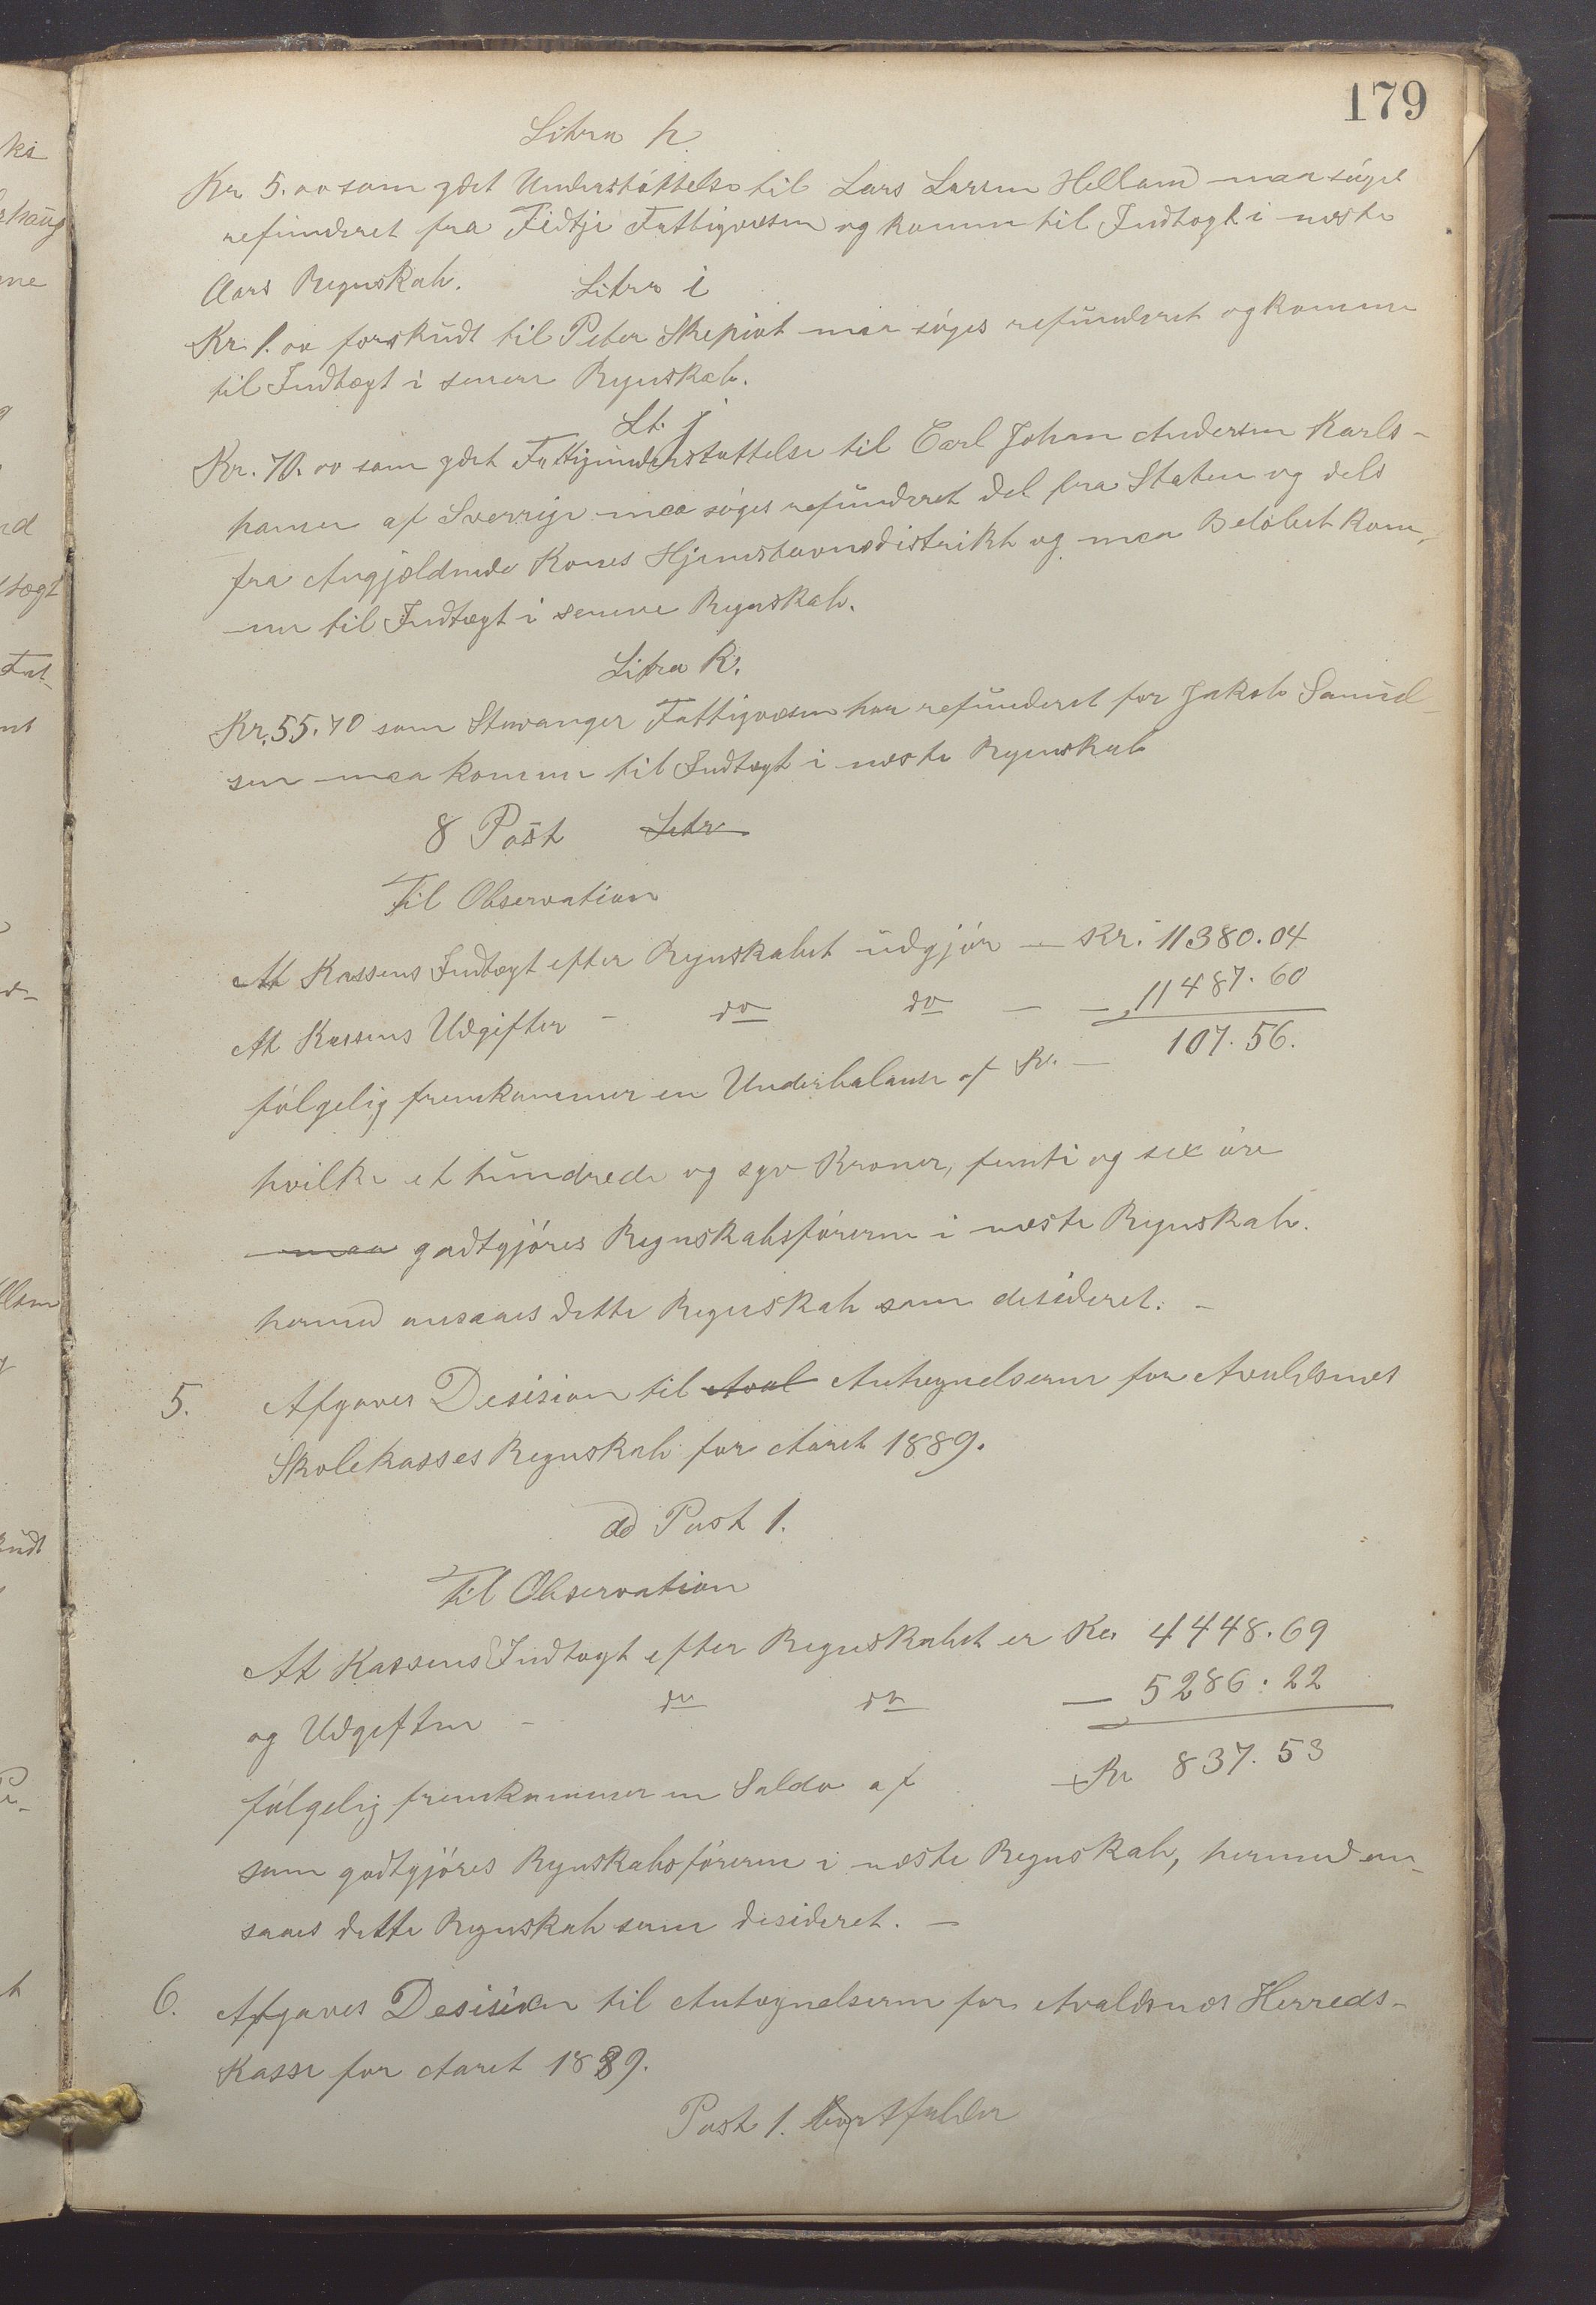 179
Litra h
Kr 5.00 som ydet Understöttelse til Lars Larsen Helland maa söges
refunderet fra Tidtje Fattigvæsen og komme til Indtægt i næste
Aars Regnskab. Litra i
Kr. 1.00 forskudt til Peter Skepivt maa söges refunderet og komme
til Indtægt i senere Regnskab.
Lt. j
Kr. 70.00 som ydet Fattigunderstøttelse til Carl Johan Andersen Karls-
hamn af Sverrige maa söges refunderet del fra Staten og dels
fra Angjældende Kones Hjemstavnsdistrikt og maa Beløbet kom-
me til Indtægt i senere Regnskab.
Litra K.
Kr. 55.70 som Stavanger Fattigvæsen har refunderet for Jakob Samuel-
sen maa komme til Indtægt i næste Regnskab
8 Post Litr
Til Observation
At Kassens Indtægt efter Regnskabet udgjör — Kr. 11380.04
At Kassens Udgifter - do do — — 11487.60
fölgelig fremkommer en Underbalance af Kr. — 107.56.
hvilke et hundrede og syv Kroner, femti og sex öre
maa godtgjöres Regnskabsförern i næste Regnskab.
hermed ansaaes dette Regnskab som desideret. -
5. Afgaves Desision til Aval Antegnelserne for Avaldsnes
Skolekasses Regnskab for Aaret 1889.
ad Post 1.
Til Observation
At Kassens Indtægt efter Regnskabet er Kr. 4448.69
og Udgiften - do do — 5286.22
fölgelig fremkommer en Saldo af Kr 837.53
som godtgjöres Regnskabsförern i næste Regnskab, hermed an-
saaes dette Regnskab som desideret. —
6. Afgaves Desision til Antegnelserne for Avaldsnes Herreds-
kasse for Aaret 1889.
Post 1. bortfalder